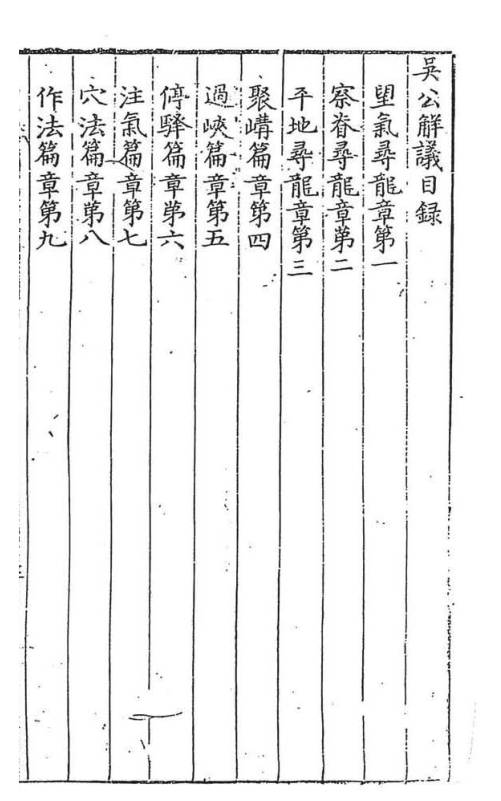 吳公解議目録
望氣尋龍章第一
察脊尋龍章苐二
平地尋龍章第三
聚講篇章第四
過峽篇章第五
停驛篇章苐六
注氣篇章第七
穴法篇章苐八
作法篇章第九